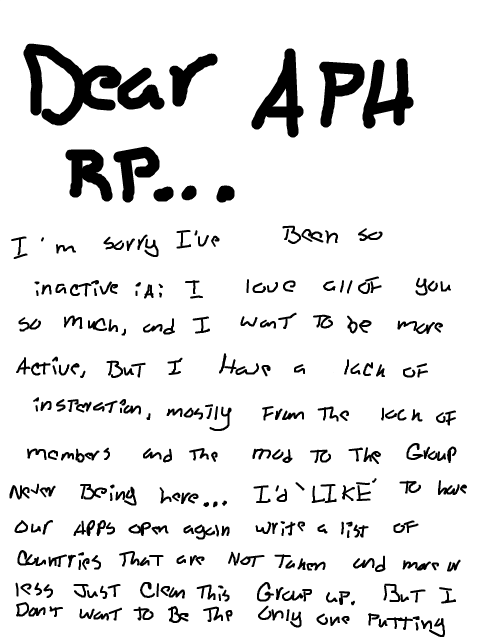 Dear APH
RP...
I'm sorry I've Been so
inactive ;A; I love all of you
so much, and I want to be more
Active, But I Have a lack of
insteration, mostly From The lack of
members and the mod To The Group
Never Being here... I'd `LIKE´ To have
our Apps open again write a list of
Countries That are Not Taken and more or
less Just Clean This Group up. But I
Don't want To Be The Only one Putting